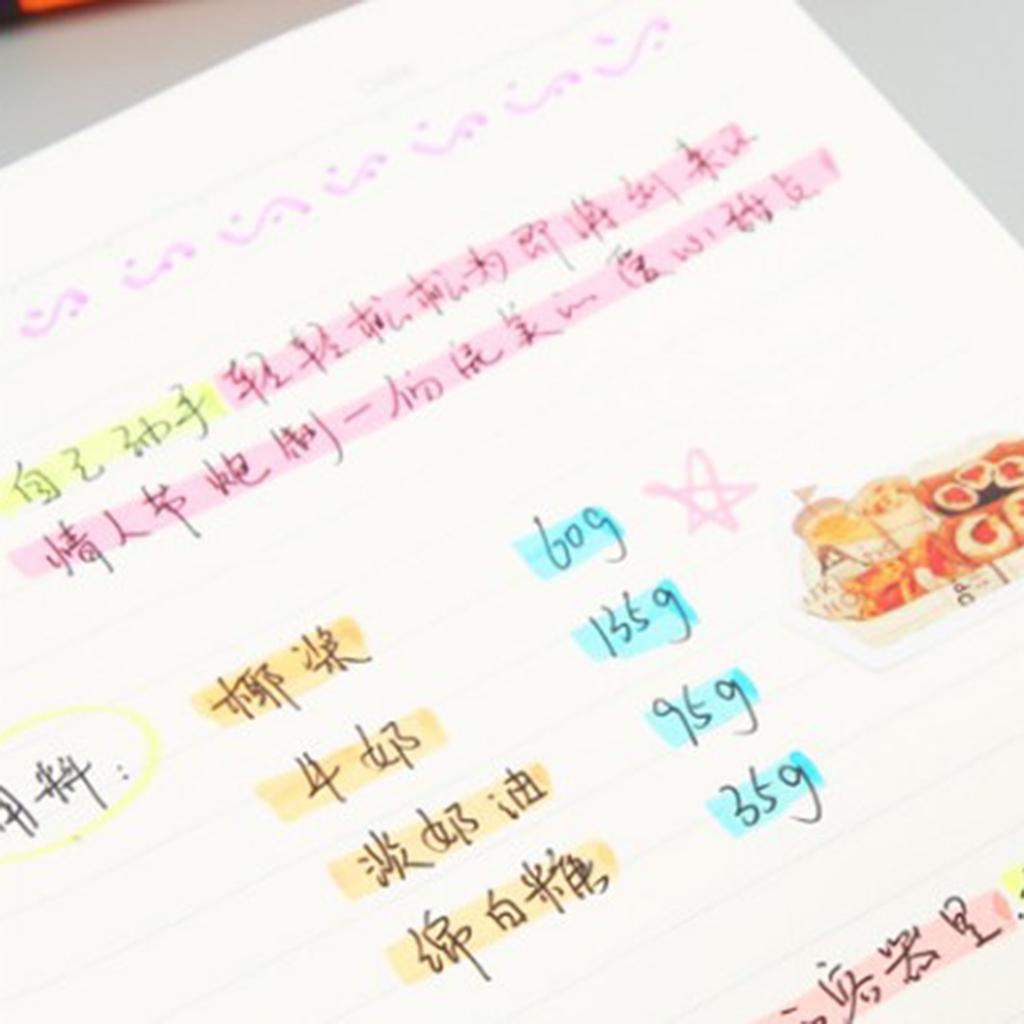 自己动手轻轻松松为即将到来的
情人节炮制一份完美的爱心甜点!
用料:
椰浆 60g
牛奶 135g
淡奶油 95g
绵白糖 35g
容器里